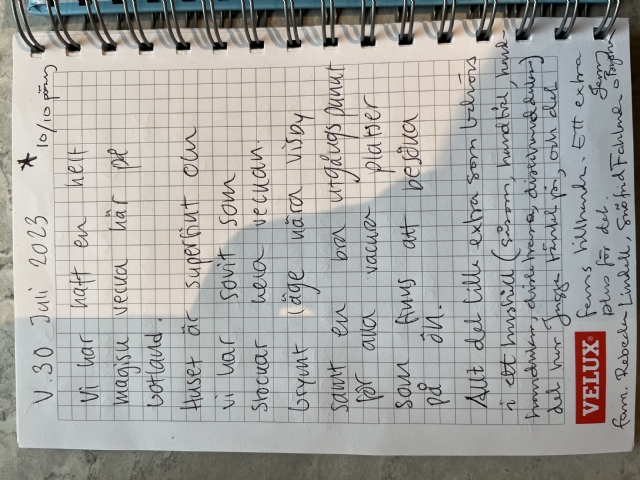 V.30 Juli 2023 * 10/10 poäng
Vi har haft en helt
magisk vecka här på
Gotland.
Huset är superfint och
vi har sovit som
stockar hela veckan.
Grymt läge nära Visby
samt en bra utgångspunkt
för alla vackra platser
som finns att besöka
på ön.
Allt det lilla extra som behövs
i ett hushåll (såsom, handtvål, hand-
handdukar, disktrasa, diskmaskinsmedel)
det har tänkt på, och det
fanns tillhanda. Ett extra
plus för det.
Fam. Rebecka Lindell, Sixten Fahlman
VELUX®